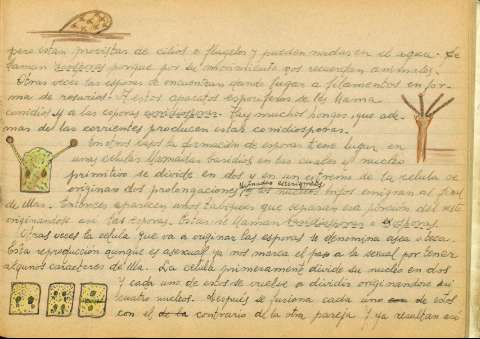 pero estan provistas de cilios o flagelos y pueden nadar en el agua. Se
llaman zoosporas porque por su movimiento nos recuerdan animales.
Otras veces las esporas se encuentran dando lugar a filamentos en for-
ma de rosarios. A estos aparatos esporiferos se les llama
conidios y a las esporas conidiosporas. Hay muchos hongos que ade-
mas de las corrientes producen estas conidiosporas.
En otros casos la formación de esporas tiene lugar en
unas células llamadas basidios en las cuales el nucleo
primitivo se divide en dos y en un extremo de la celula se
originan dos prolongaciones llamadas esterigmas y los nucleos hijos emigran al final
de ellas. Entonces aparecen unos tabiques que separan esa porción del resto
originandose asi las esporas. Estas se llaman
Otras veces la celula que va a originar las esporas se denomina asca o teca.
Esta reproducción aunque es asexual ya nos marca el paso a la sexual por tener
algunos caracteres de ella. La celula primeramente divide su nucleo en dos
y cada uno de estos se vuelve a dividir originandose asi
cuatro nucleos. Después se fusiona cada uno de estos
con el contrario de la otra pareja. Y ya resultan asi